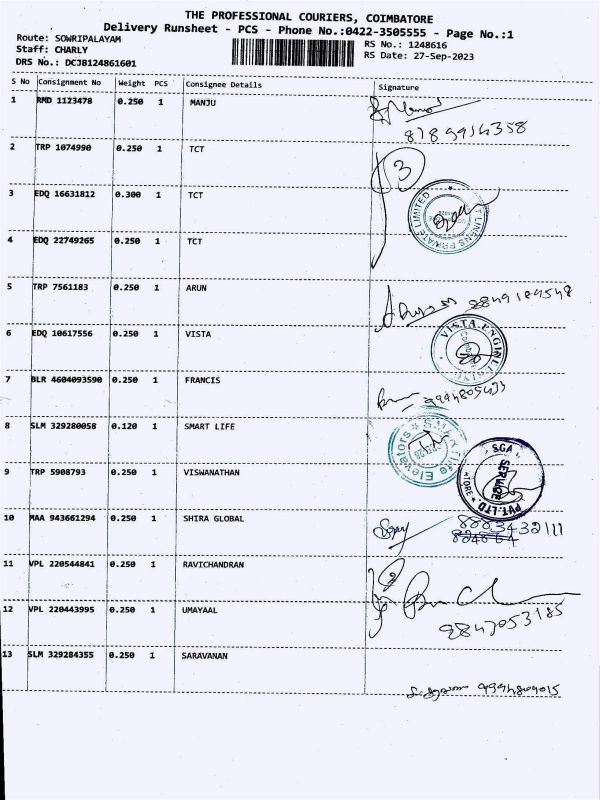 THE PROFESSIONAL COURIERS, COIMBATORE
Delivery Runsheet - PCS - Phone No.:0422-3505555 - Page No.:1
Route: SOWRIPALAYAM
RS No.: 1248616
Staff: CHARLY
RS Date: 27-Sep-2023
DRS No.: DCJB124861601
S No Consignment No Weight PCS Consignee Details Signature
1 RMD 1123478 0.250 1 MANJU
8189914358
2 TRP 1074990 0.250 1 TCT
3
3 EDQ 16631812 0.300 1 TCT
LINENS PRIVATE LIMITED
4 EDQ 22749265 0.250 1 TCT
5 TRP 7561183 0.250 1 ARUN
6 EDQ 10617556 0.250 1 VISTA
VISTA ENGINE
7 BLR 4604093590 0.250 1 FRANCIS
8 SLM 329280058 0.120 1 SMART LIFE
Elevators
9 TRP 5908793 0.250 1 VISWANATHAN
SGA
SERVICE
PVT.LTD
10 MAA 943661294 0.250 1 SHIRA GLOBAL
8883432111
11 VPL 220544841 0.250 1 RAVICHANDRAN
12 VPL 220443995 0.250 1 UMAYAAL
9847053185
13 SLM 329284355 0.250 1 SARAVANAN